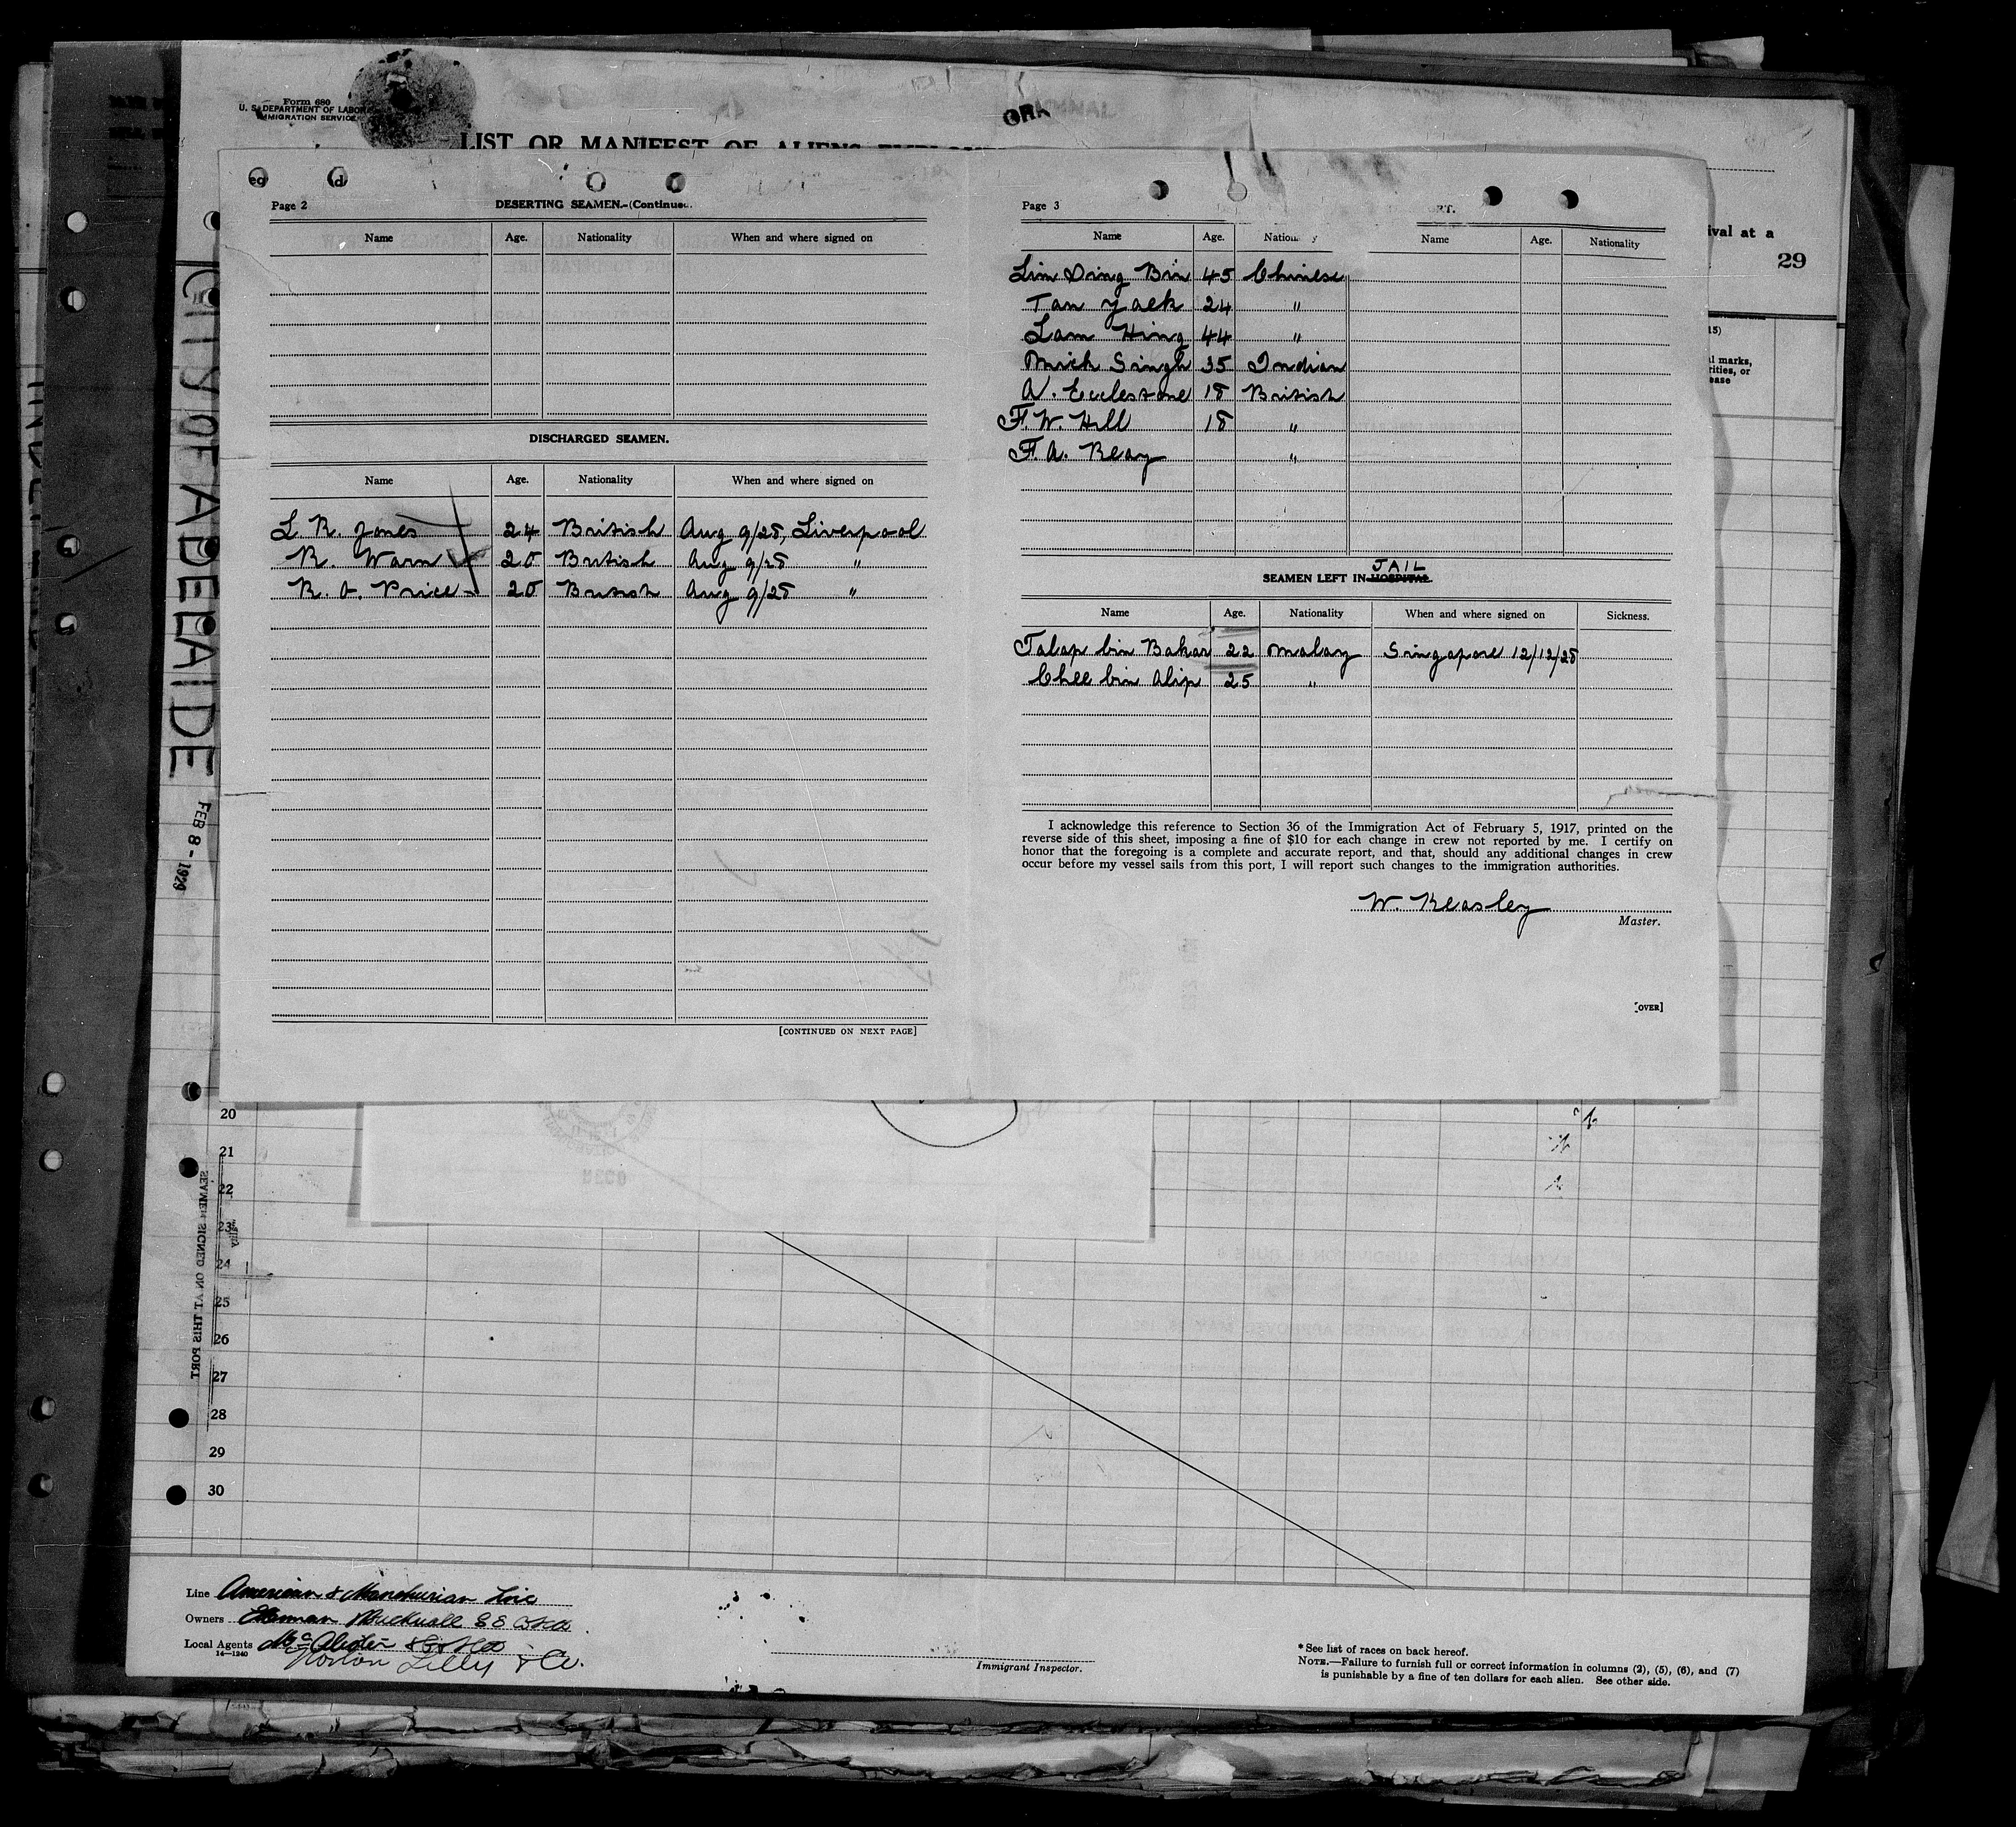 Form 680
U. S. DEPARTMENT OF LABOR
IMMIGRATION SERVICE
LIST OR MANIFEST OF ALIENS
ival at a
29
15)
l marks,
rities, or
ease
CITY OF ADELAIDE
FEB 8 - 1929
Page 2
DESERTING SEAMEN.-(Continue
Name Age. Nationality When and where signed on
DISCHARGED SEAMEN.
Name Age. Nationality When and where signed on
L. R. Jones 24 British Aug 9/28, Liverpool
R. Warn 20 British Aug 9/28 "
R. A. Price 20 British Aug 9/28 "
[CONTINUED ON NEXT PAGE]
Page 3
RT.
Name Age. Nation y Name Age. Nationality
Lim Ding Bin 45 Chinese
Tan Yaek 24 "
Lam Hing 44 "
Mich Singh 35 Indian
A. Ecclestone 18 British
F. W. Hill 18 "
F. A. Reay "
JAIL
SEAMEN LEFT IN HOSPITAL.
Name Age. Nationality When and where signed on Sickness.
Talap bin Bakar 22 Malay Singapore 12/12/28
Chee bin Alip 25 "
I acknowledge this reference to Section 36 of the Immigration Act of February 5, 1917, printed on the
reverse side of this sheet, imposing a fine of $10 for each change in crew not reported by me. I certify on
honor that the foregoing is a complete and accurate report, and that, should any additional changes in crew
occur before my vessel sails from this port, I will report such changes to the immigration authorities.
W. Keasley
Master.
[OVER]
20
21
22
23
24
25
26
27
28
29
30
SEAMEN SIGNED ON AT THIS PORT
Line American & Manchurian Line
Owners Ellerman Bucknall S S Co Ltd
Local Agents
14—1240
Norton Lilly & Co.
Immigrant Inspector.
* See list of races on back hereof.
NOTE.—Failure to furnish full or correct information in columns (2), (5), (6), and (7)
is punishable by a fine of ten dollars for each alien. See other side.